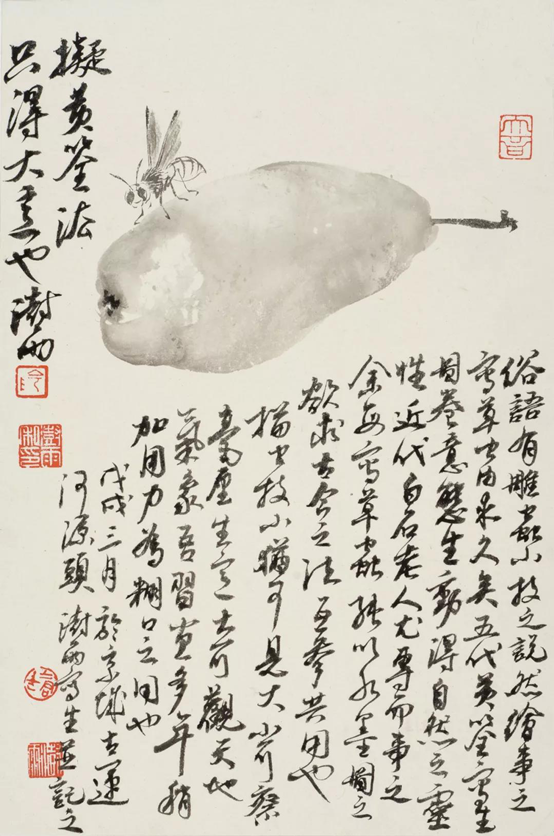 擬黄筌法
只得大意也澍雨
俗語有雕虫小技之説然繪事之
寫草虫由来久矣五代黄筌寫生
图卷意態生動得自然之靈
性近代白石老人尤專而事之
余每寫草蟲純以水墨之
欲求古今之法互參共用也
描虫技小猶可見大小可察
毫厘生意大可觀天地
氣象吾習画多年稍
加用力為糊口之用也
戊戌三月於京城古運
河源頭澍雨寫生並記之